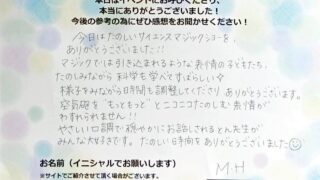 本日はイベントにお呼びくださり、
本当にありがとうございました！
今後の参考の為にぜひ感想をお聞かせください！
今日はたのしいサイエンスマジックショーを、
ありがとうございました!!
マジックでは引き込まれるような表情の子どもたち、
たのしみながら科学も学べてすばらしい☆
様子をみながら日時間も調整してくださり ありがとうございます。
空気砲を"もっともっと"とニコニコたのしむ表情が
わすれられません!!
やさしい口調で穏やかにお話しされるとん先生が
みんな大好きです。たのしい1日時間をありがとうございました☺
お名前（イニシャルでお願いします）
M・H
※サイトでご紹介させて頂く場合がございます。